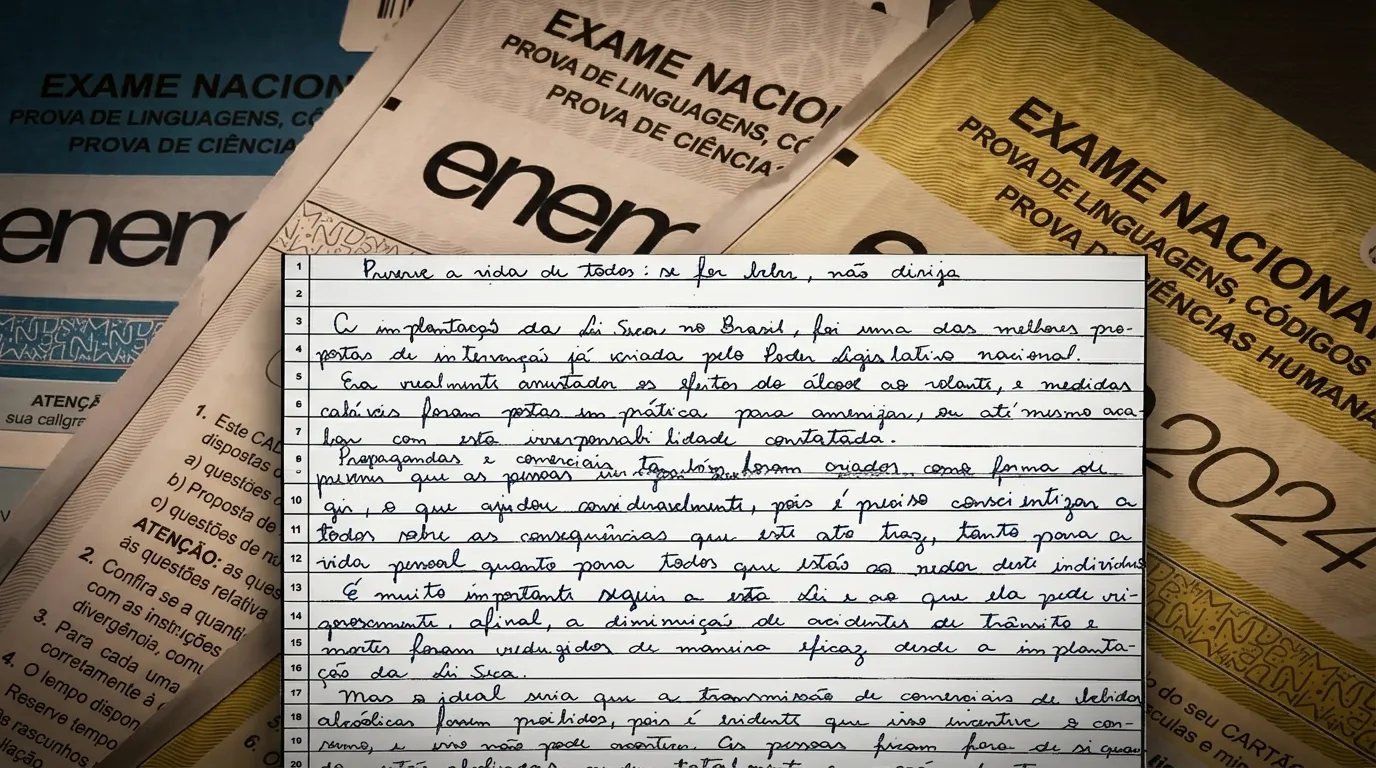 EXAME NACION
PROVA DE LINGUAGENS, CÓ
PROVA DE CIÊNCIA
enem
ATENÇÃ
sua caligra
EXAME NACION
PROVA DE LINGUAGENS, CÓ
PROVA DE CIÊNCIA
enem
1. Este CAD
dispostas
a) questões
b) Proposta de
c) questões de nu
ATENÇÃO: as ques
às questões relativa
2. Confira se a quanti
com as instruções
divergência, comu
3. Para cada uma
corretamente à
4. O tempo dispon
Reserve tempo
rascunhos
EXAME NACIONAL
PROVA DE LINGUAGENS, CÓDIGOS
PROVA DE CIÊNCIAS HUMANA
2024
5.
6. O
do seu CARTÃ
sculas e mi
1 Preserve a vida de todos: se for beber, não dirija
2
3 A implantação da Lei Seca no Brasil, foi uma das melhores pro-
4 postas de intervenção já criada pelo Poder Legislativo nacional.
5 Era realmente assustador os efeitos do álcool ao volante, e medidas
6 cabíveis foram postas em prática para amenizar, ou até mesmo aca-
7 bar com esta irresponsabilidade constatada.
8 Propagandas e comerciais também foram criados como forma de
9 prevenir que as pessoas
10 gir, o que ajudou consideravelmente, pois é preciso conscientizar a
11 todos sobre as consequências que este ato traz, tanto para a
12 vida pessoal quanto para todos que estão ao redor deste indivíduo
13 É muito importante seguir a esta Lei e ao que ela pede ri-
14 gorosamente, afinal, a diminuição de acidentes de trânsito e
15 mortes foram reduzidos de maneira eficaz desde a implanta-
16 ção da Lei Seca.
17 Mas o ideal seria que a transmissão de comerciais de bebidas
18 alcoólicas fossem proibidos, pois é evidente que isso incentive o con-
19 sumo, e isso não pode acontecer. As pessoas ficam fora de si quan-
20